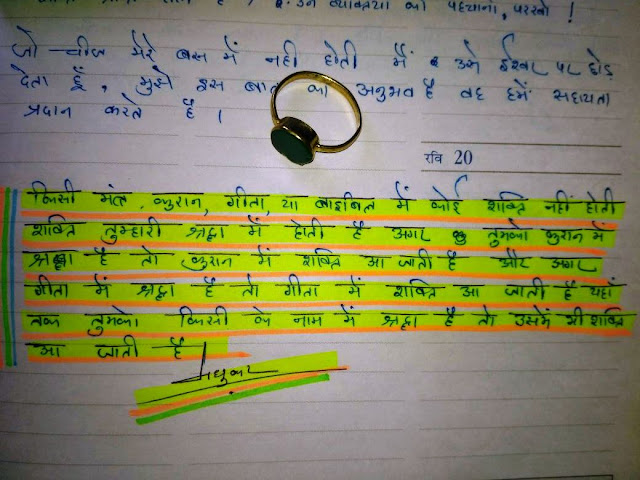 है, इन व्यक्तियों को पहचानो, परखो !
जो चीज मेरे बस में नही होती मैं उसे ईश्वर पर छोड़
देता हूँ, मुझे इस बात का अनुभव है वह हमें सहायता
प्रदान करते है ।
रवि 20
किसी मंत्र, कुरान, गीता, या बाइबिल में कोई शक्ति नहीं होती
शक्ति तुम्हारी श्रद्धा में होती है अगर तुमको कुरान में
श्रद्धा है तो कुरान में शक्ति आ जाती है और अगर
गीता में श्रद्धा है तो गीता में शक्ति आ जाती है यहाँ
तक तुमको किसी के नाम में श्रद्धा है तो उसमें भी शक्ति
आ जाती है
मधुकर